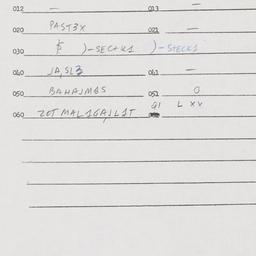 012 — 013 —
020 PAST3X 021 —
030 $ )-SEC+K1 )-STECK1
040 JA,SL3 041 —
050 BAHAJMGS 051 O
060 ZOT MAL1GAJL1T 91 L XV